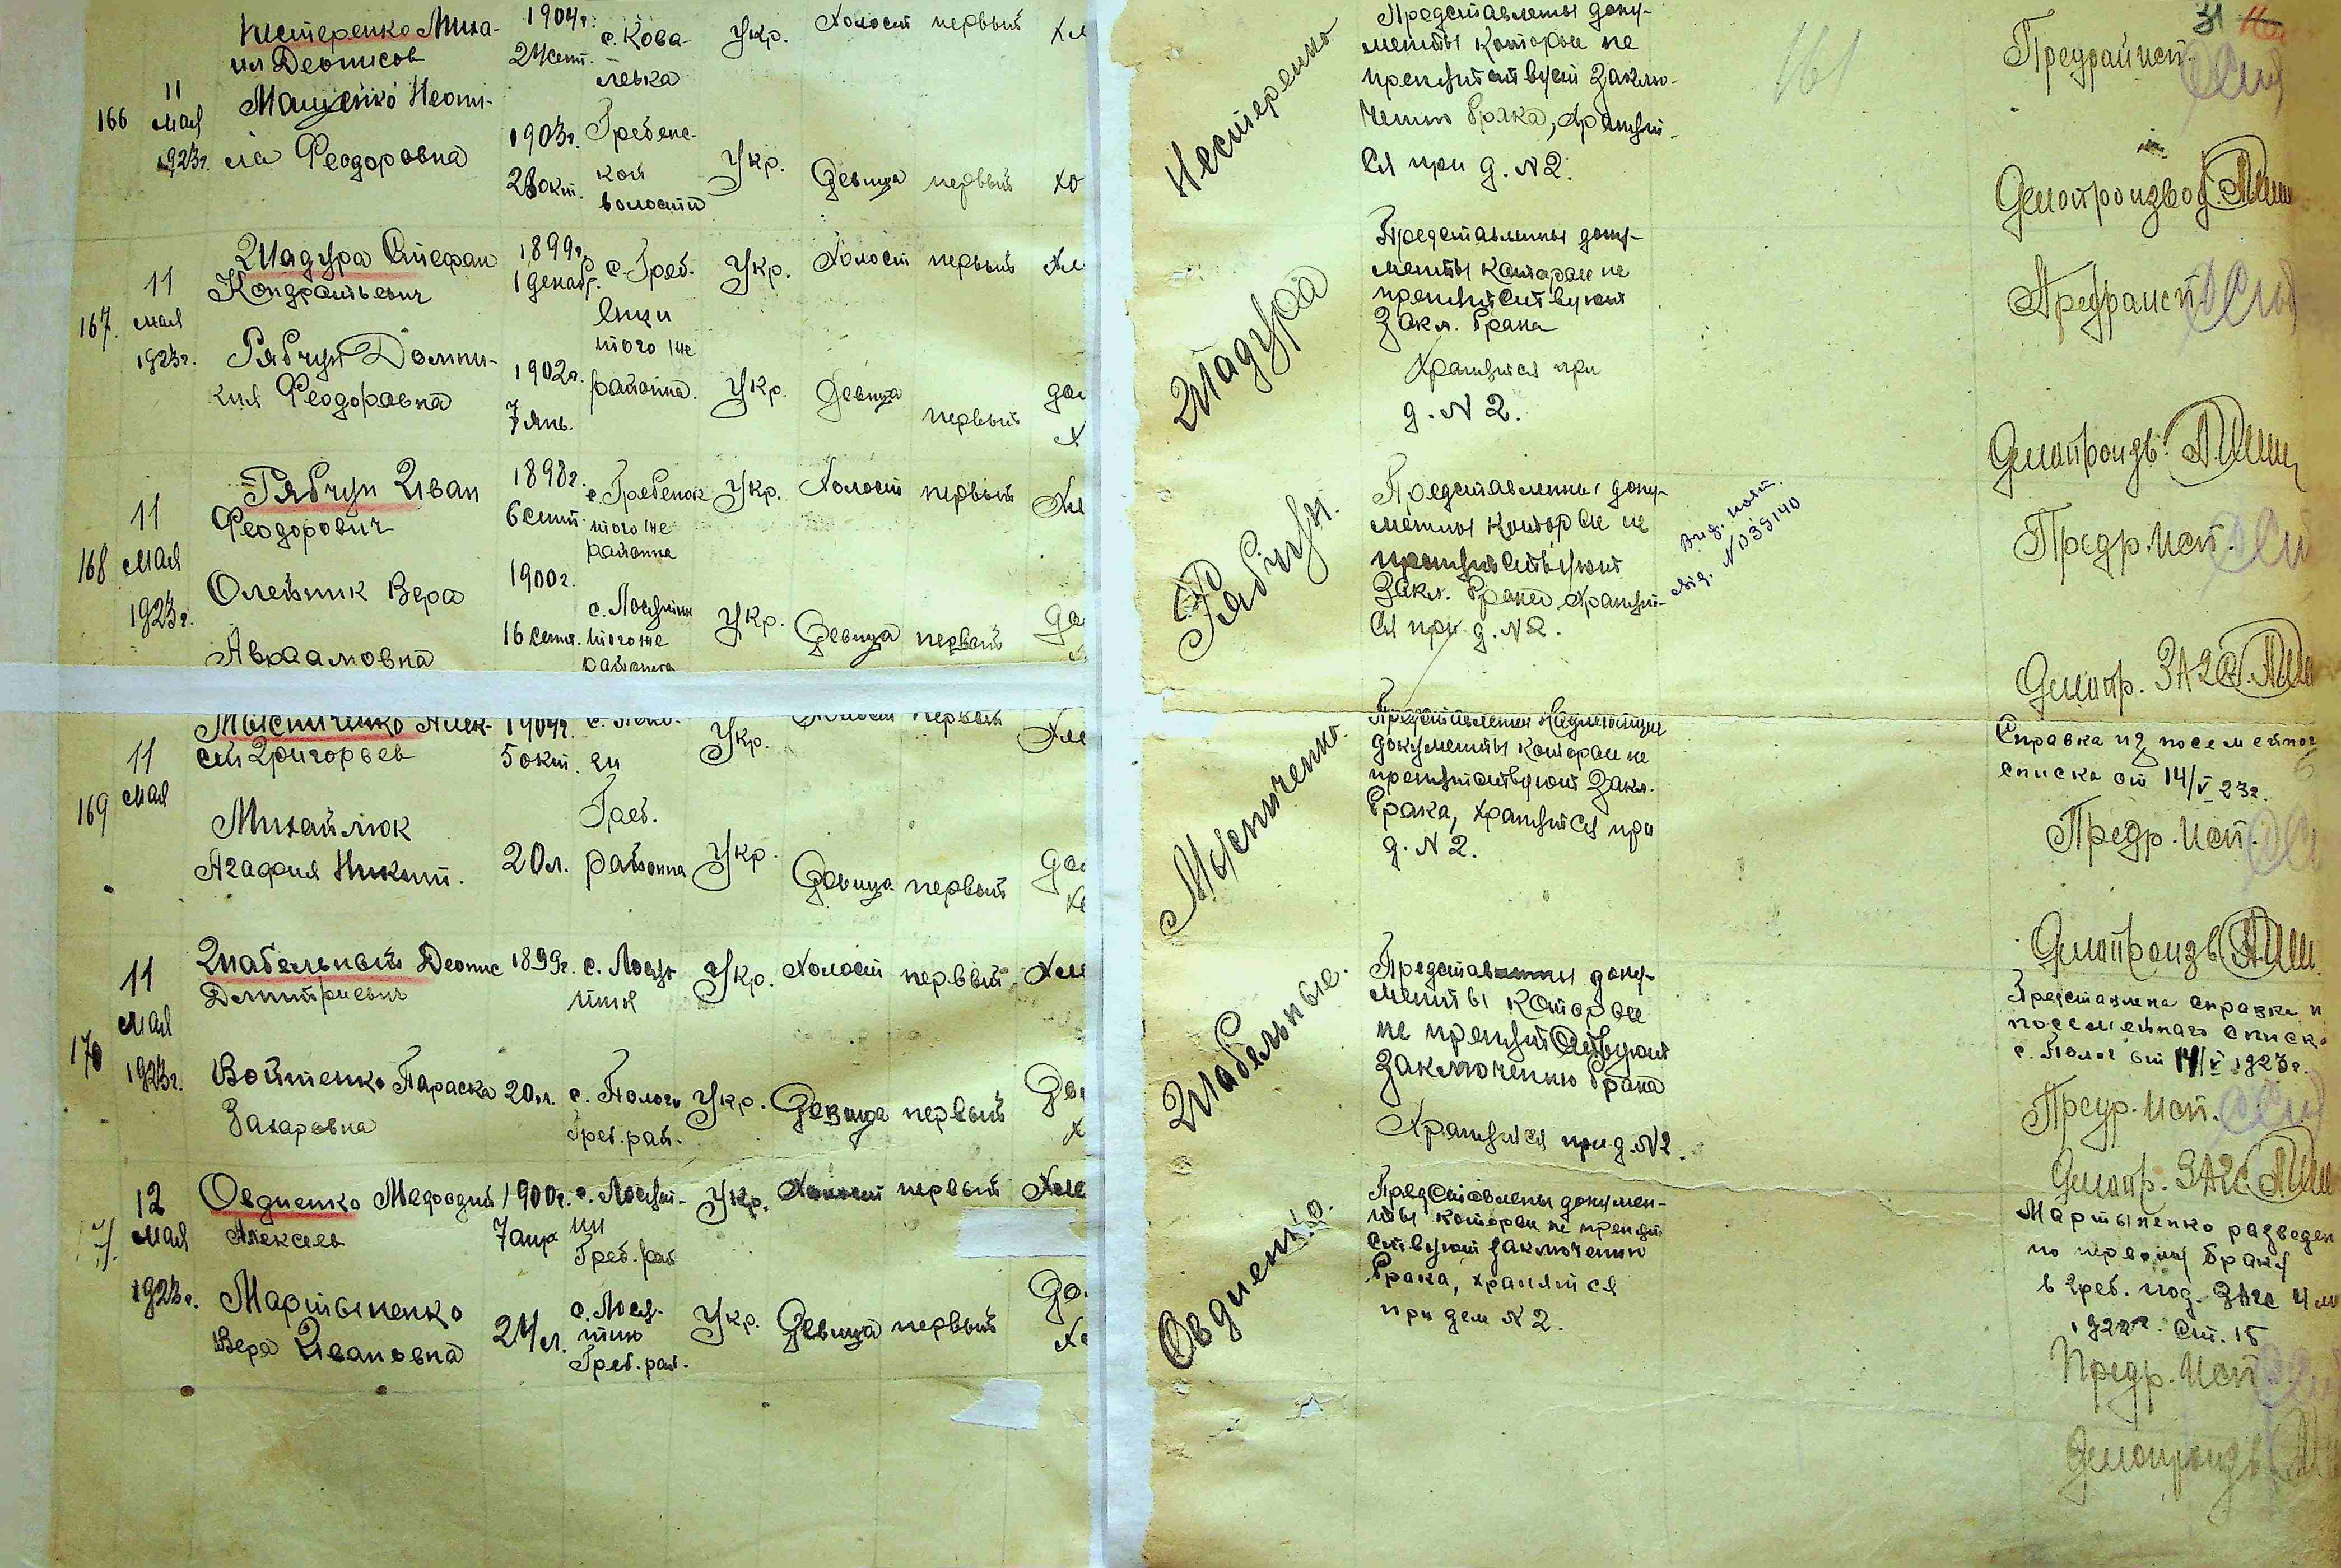 166
11
мая
1923г.
Нестеренко Миха-
ил Деонисов
1904г.
с. Кова-
левка
Укр.
Холост
первый
Феодоровна
1903г.
Гребенс-
кой
волости
Укр.
Девица
первый
хо
167.
11
мая
1923г.
Шадура Стефан
Кондратьевич
1899г.
1 декаб.
с. Греб-
енки
того же
района.
Укр.
Холост
первый
Хле
Рябчун Домни-
кия Феодоровна
1902г.
7 янв.
Укр.
Девица
первый
168
11
мая
1923г.
Рябчун Иван
Феодорович
1898г.
6 сент.
с. Гребенок
того же
района
Укр.
Холост
первый
Хле
Олейник Вера
Авраамовна
1900г.
16 сент.
того же
района
Укр.
Девица
первый
169
11
мая
Алек-
сей Григорьев
1904г.
5 окт.
Укр.
Холост
первый
Хле
Михайлюк
Агафия Никит.
20л.
Греб.
района
Укр.
Девица
первый
170
11
мая
1923г.
Шабельный Деонис
Дмитриевич
1899г.
Укр.
Холост
первый
Хле
Войтенко Параска
Захаровна
20л.
с. Пологи
Греб. рай.
Укр.
Девица
первый
171.
12
мая
1923г.
Овдиенко Мефодий
Алексеев
1900г.
7 апр.
Греб. рай
Укр.
Холост
первый
Хле
Мартыненко
Вера Ивановна
24л.
Греб. рай.
Укр.
Девица
первый
31
161
Нестеренко
Представлены доку-
менты которые не
препятствуют заклю-
чению брака, хранят-
ся при д. N 2.
Предрайисп.
Делопроизвод.
Шадура
Представлены доку-
менты которые не
препятствуют
закл. брака
Хранятся при
д. N 2.
Предрайисп.
Делопроизв.
Рябчун.
Представлены доку-
менты которые не
препятствуют
закл. брака хранят-
ся при д. N 2.
Предр. Исп.
Делопр. ЗАГС
документы которые не
препятствуют закл.
брака, хранятся при
д. N 2.
Справка из посемейного
списка от 14/V 23г.
Предр. Исп.
Делопроизв
Шабельные.
Представлены доку-
менты которые
не препятствуют
заключению брака
Хранятся при д. N 2.
Представлена справка и
посемейнаго списк
с. Полог от 14/V 1923г.
Предр. Исп.
Делопр. ЗАГС
Овдиенко.
Представлены докумен-
ты которые не препят
ствуют заключению
брака, хранятся
при деле N 2.
Мартыненко разведен
по первому браку
в Греб. под. ЗАГС
1922г. Ст. 15
Предр. Исп
Делопроизв